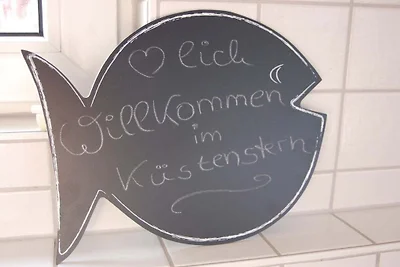 ♡lich
Willkommen
im
Küstenstern